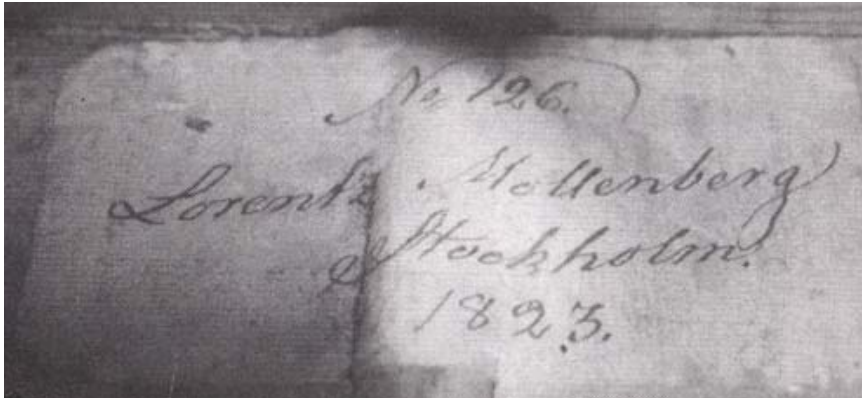 No 126.
Lorentz Mollenberg
Stockholm.
1823.